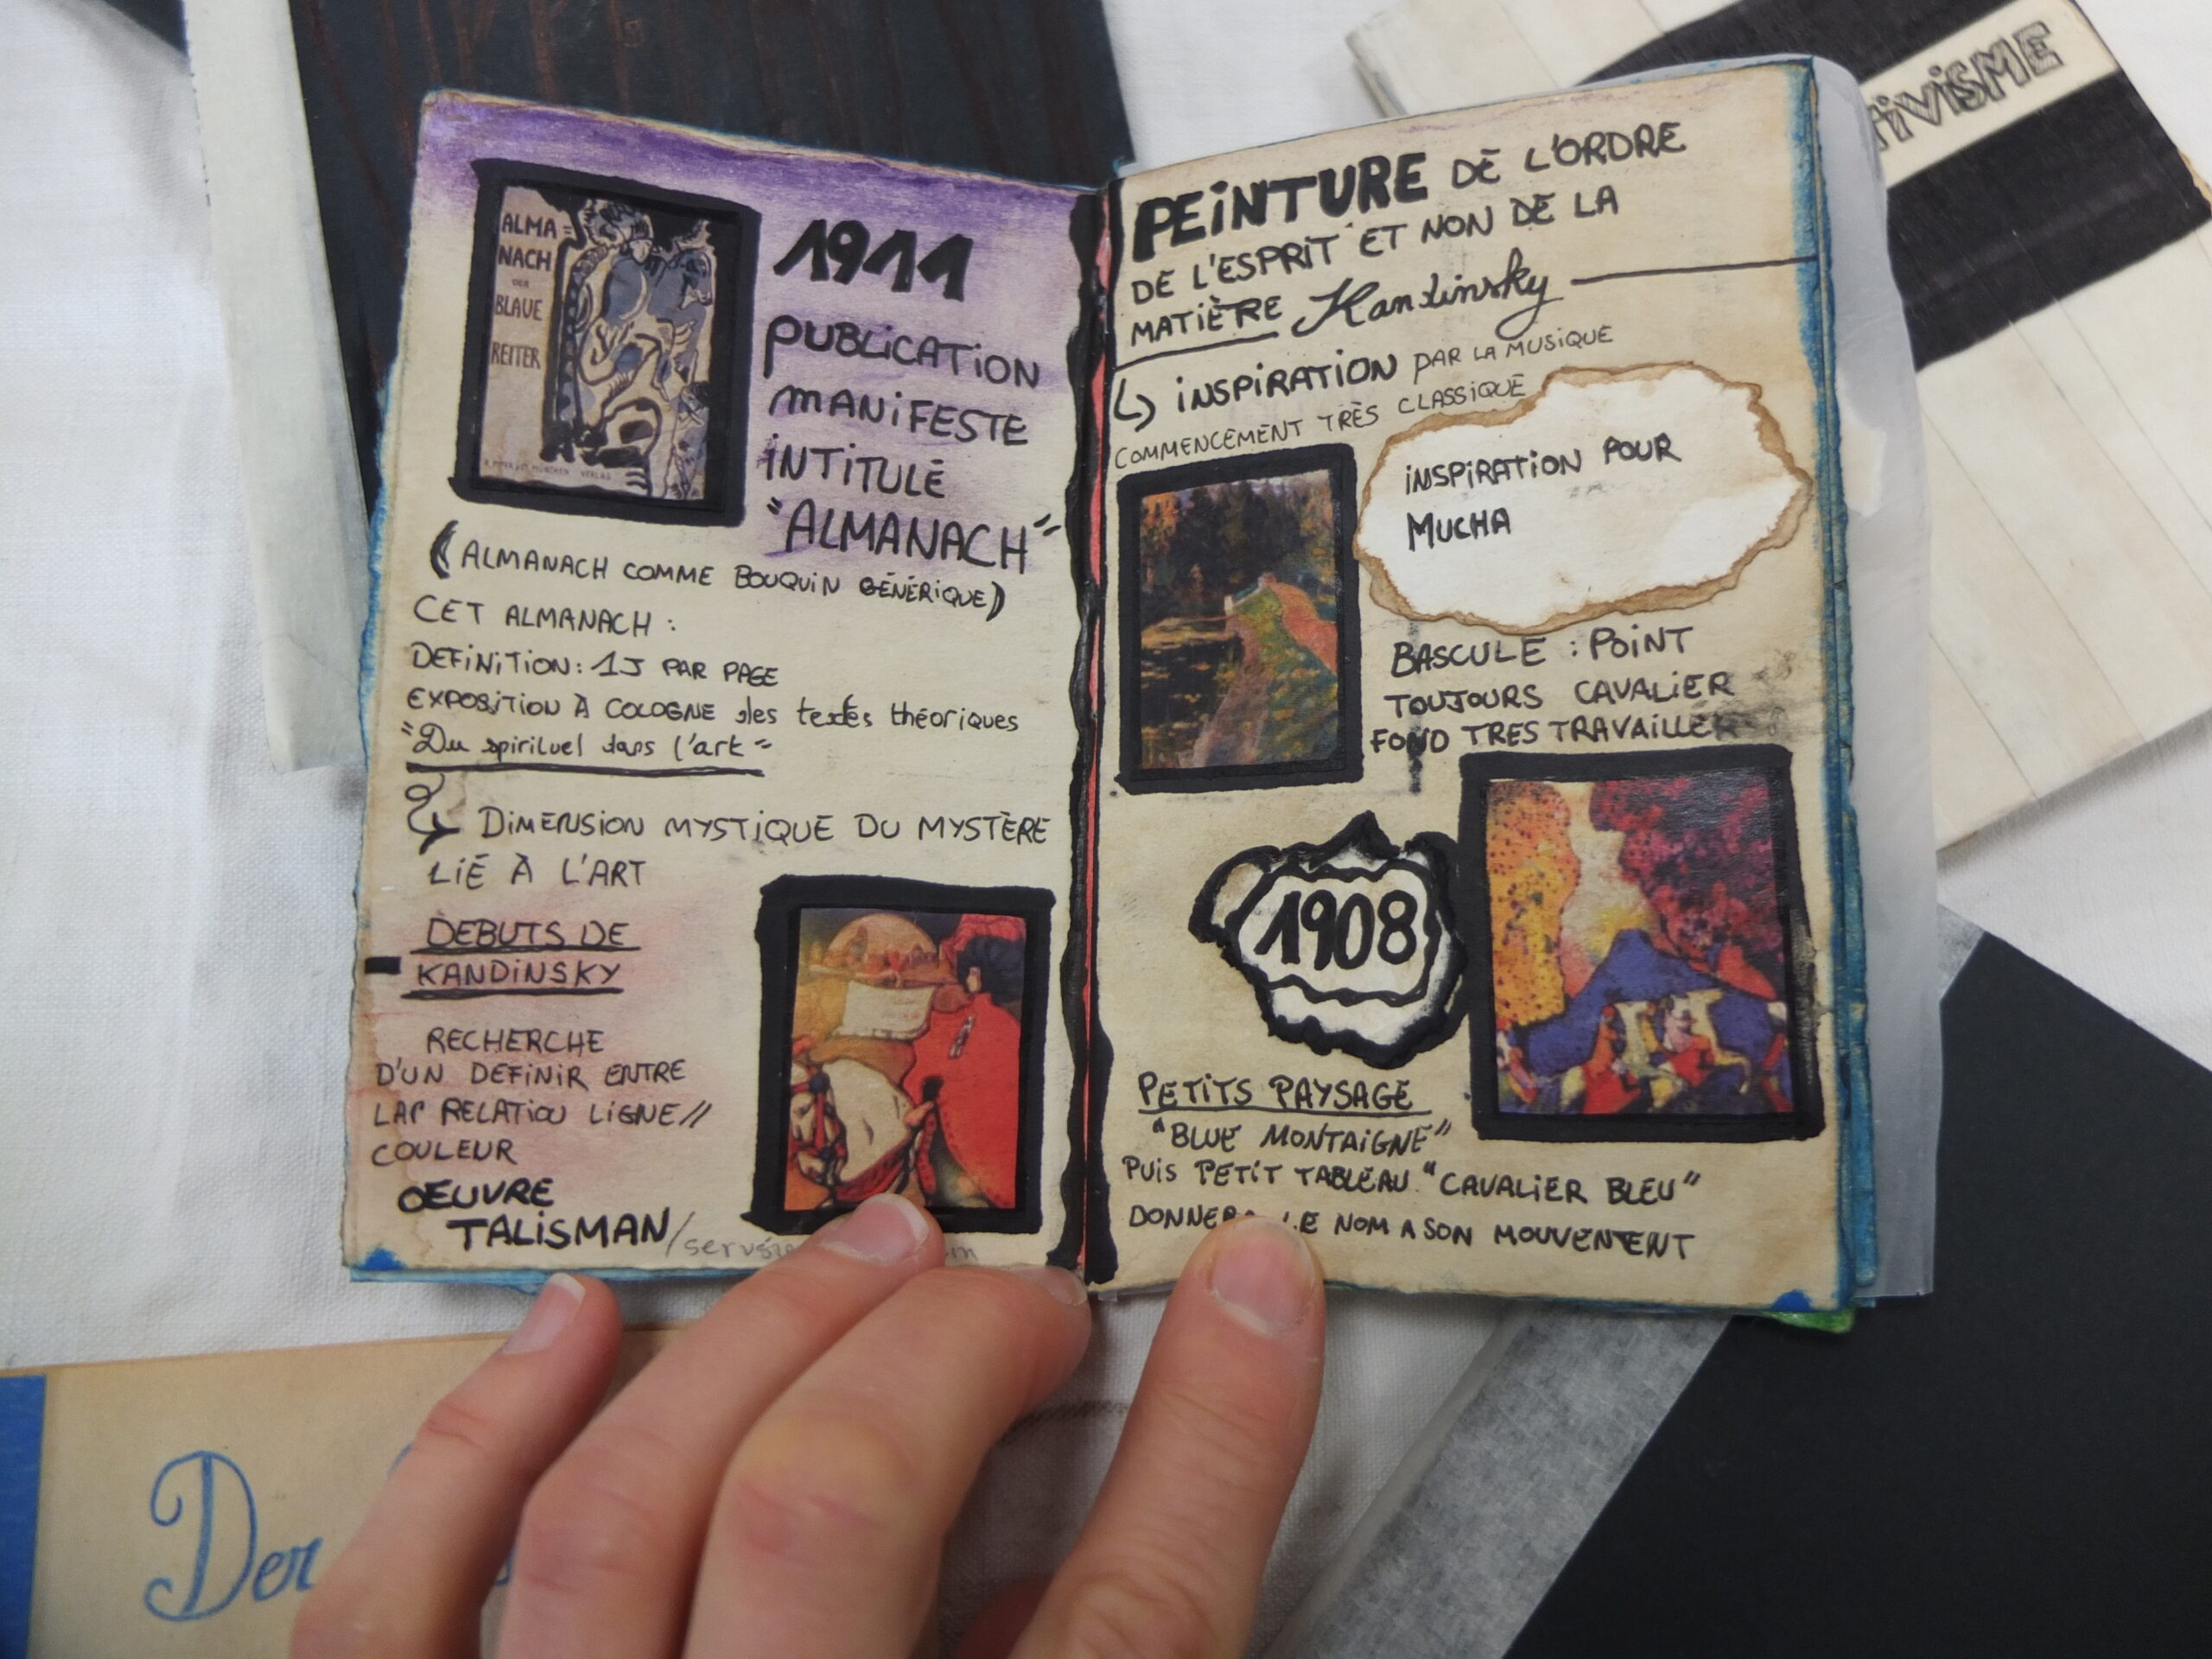 ALMA=
NACH
DER
BLAUE
REITER
1911
PUBLICATION
MANIFESTE
INTITULÉ
"ALMANACH"
(ALMANACH COMME BOUQUIN GÉNÉRIQUE)
CET ALMANACH :
DEFINITION: 1J PAR PAGE
EXPOSITION À COLOGNE des textes théoriques
"Du spirituel dans l'art"
DIMENSION MYSTIQUE DU MYSTÈRE
LIÉ À L'ART
DEBUTS DE
KANDINSKY
RECHERCHE
D'UN DEFINIR ENTRE
RELATION LIGNE//
COULEUR
OEUVRE
TALISMAN/
PEINTURE DE L'ORDRE
DE L'ESPRIT ET NON DE LA
MATIÈRE Kandinsky
INSPIRATION PAR LA MUSIQUE
COMMENCEMENT TRÈS CLASSIQUE
INSPIRATION POUR
MUCHA
BASCULE : POINT
TOUJOURS CAVALIER
FOND TRES TRAVAILLER
1908
PETITS PAYSAGE
"BLUE MONTAIGNE"
PUIS PETIT TABLEAU "CAVALIER BLEU"
LE NOM A SON MOUVENTENT
Der